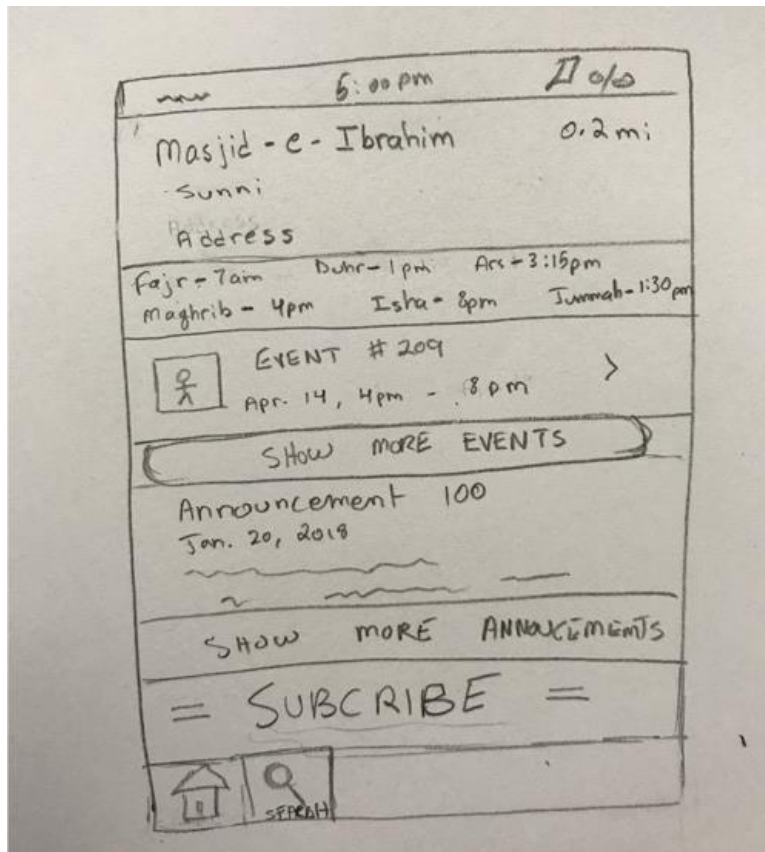 5:00pm
Masjid-e-Ibrahim 0.2 mi
Sunni
Address
Fajr-7am Duhr-1pm Ars-3:15pm
Maghrib-4pm Isha-8pm Jummah-1:30pm
EVENT #209
Apr. 14, 4pm - 8pm
SHOW MORE EVENTS
Announcement 100
Jan. 20, 2018
SHOW MORE ANNOUCEMEMTS
= SUBCRIBE =
SEARCH